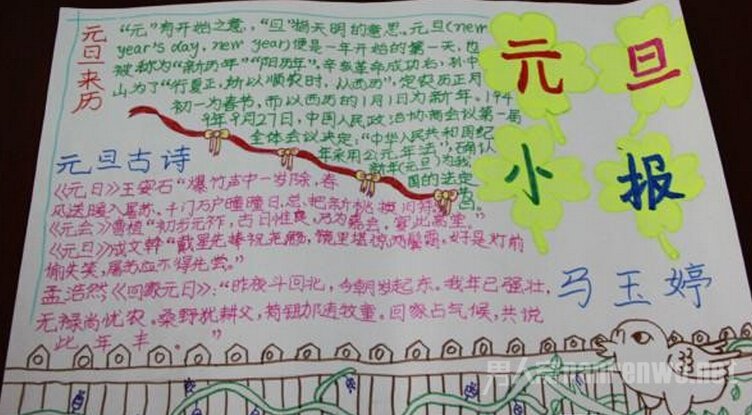 元旦来历
“元”有开始之意,“旦”指天明的意思。元旦(new
year's day, new year)便是一年开始的第一天,也
被称为“新历年”“阳历年”。辛亥革命成功后,孙中
山为了“行夏正,所以顺农时,从西历”,定农历正月
初一为春节,而以西历的1月1日为新年。194
9年9月27日,中国人民政治协商会议第一届
全体会议决定:“中华人民共和国纪
年采用公元年法”,确认
新年(元旦)为我
国的法定
节日
元旦
小报
马玉婷
元旦古诗
《元日》王安石“爆竹声中一岁除,春
风送暖入屠苏。千门万户曈曈日,总把新桃换旧符。”
《元会》曹植“初步元祚,吉日惟良,乃为嘉会,宴此高堂。”
《元日》成文幹“戴星先捧祝尧觞,镜里堪惊两鬓霜。好是灯前
偷失笑,屠苏应不得先尝。”
孟浩然《回家元日》:“昨夜斗回北,今朝岁起东。我年已强壮,
无禄尚忧农。桑野犹耕父,荷锄加随牧童。回家占气候,共说
此年丰。”
nanrenwo.net